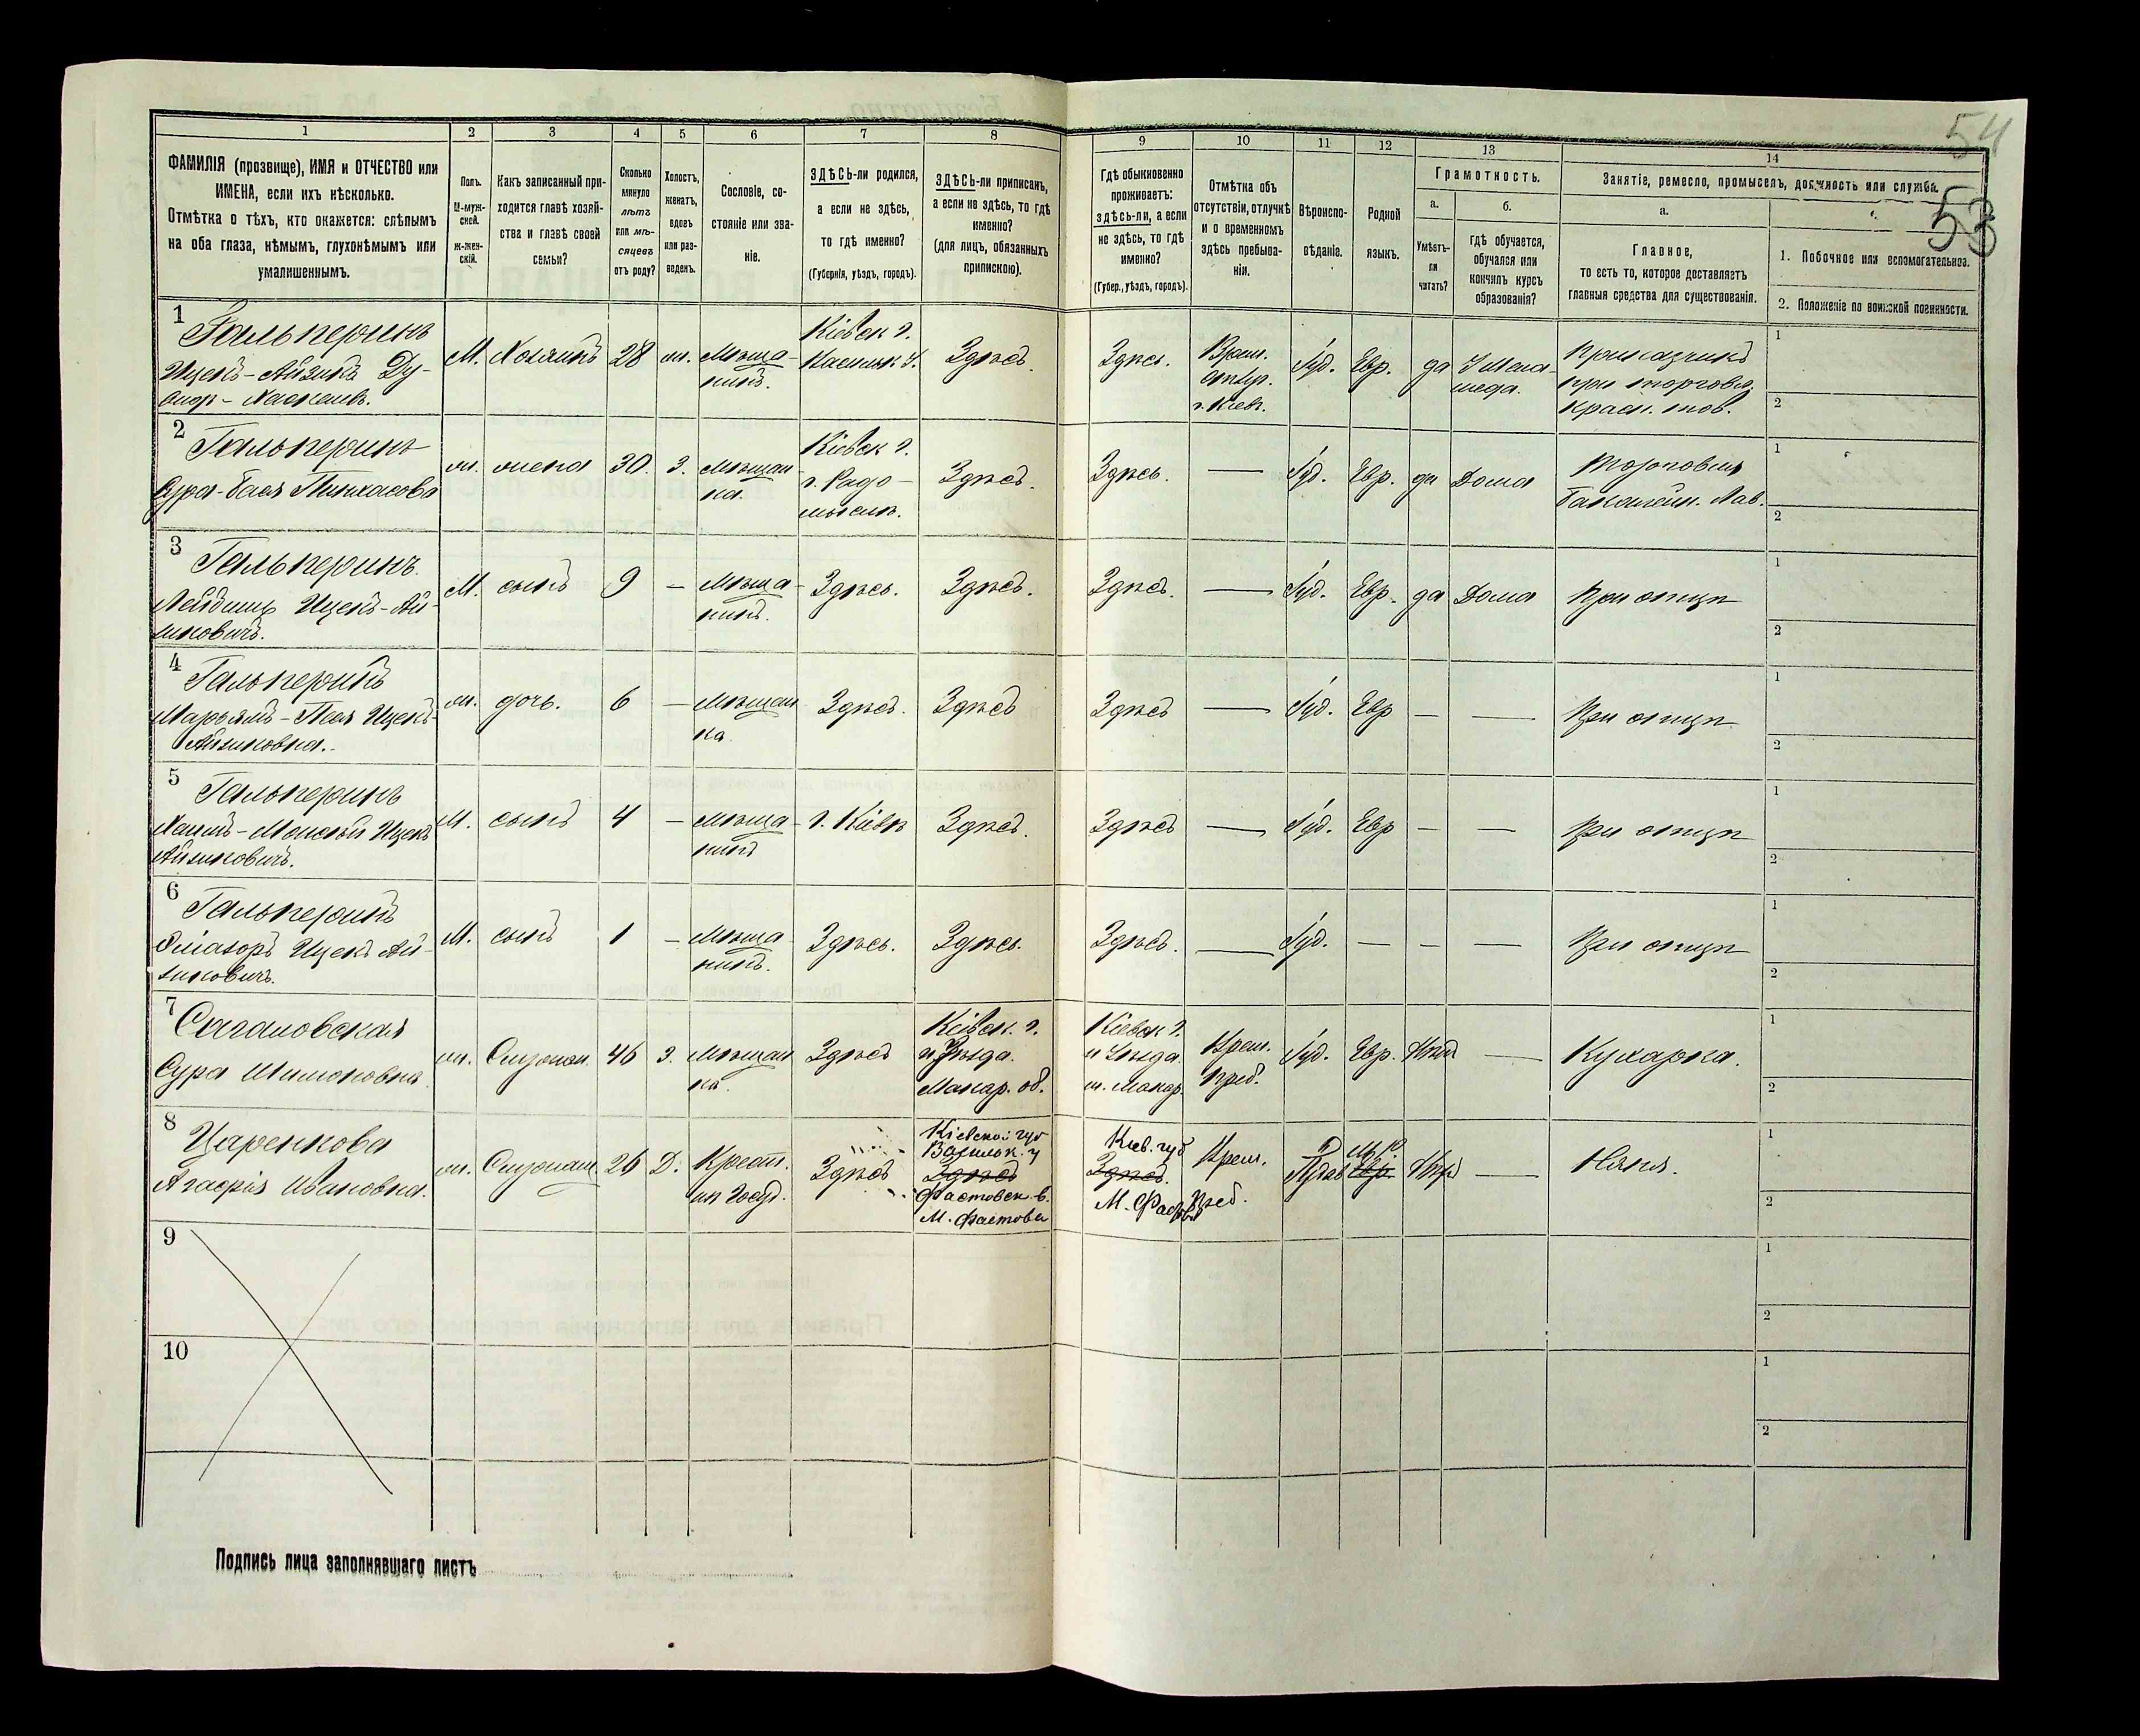 54
53
1
2
3
4
5
6
7
8
9
10
11
12
13
14
ФАМИЛІЯ (прозвище), ИМЯ и ОТЧЕСТВО или
ИМЕНА, если ихъ нѣсколько.
Отмѣтка о тѣхъ, кто окажется: слѣпымъ
на оба глаза, нѣмымъ, глухонѣмымъ или
умалишеннымъ.
Полъ.
М-муж-
ской.
ж-жен-
скій.
Какъ записанный при-
ходится главѣ хозяй-
ства и главѣ своей
семьи?
Сколько
минуло
лѣтъ
или мѣ-
сяцевъ
отъ роду?
Холостъ,
женатъ,
вдовъ
или раз-
веденъ.
Сословіе, со-
стояніе или зва-
ніе.
ЗДѢСЬ-ли родился,
а если не здѣсь,
то гдѣ именно?
(Губернія, уѣздъ, городъ).
ЗДѢСЬ-ли приписанъ,
а если не здѣсь, то гдѣ
именно?
(для лицъ, обязанныхъ
припискою).
Гдѣ обыкновенно
проживаетъ:
здѣсь-ли, а если
не здѣсь, то гдѣ
именно?
(Губер., уѣздъ, городъ).
Отмѣтка объ
отсутствіи, отлучкѣ
и о временномъ
здѣсь пребыва-
ніи.
Вѣроиспо-
вѣданіе.
Родной
языкъ.
Грамотность.
а.
б.
Умѣетъ-
ли
читать?
Гдѣ обучается,
обучался или
кончилъ курсъ
образованія?
Занятіе, ремесло, промыселъ, должность или служба.
а.
Главное,
то есть то, которое доставляетъ
главныя средства для существованія.
1. Побочное или вспомогательное.
2. Положеніе по воинской повинности.
1
Гальперинъ
Ицекъ-Айзикъ
М. Хозяинъ 28 ж. Мѣща-
нинъ.
Кіевск г.
Здѣсь.
Здѣсь.
Врем.
г. Кіевъ.
Іуд. Евр. да
Прикащикъ
при торговлѣ
красн. тов.
1
2
2
Гальперинъ
Сура-Бася Пинхасова
ж. жена 30. З. Мѣщан-
ка.
Кіевск г.
г. Радо-
мысль.
Здѣсь.
Здѣсь. — Іуд. Евр. да Дома
Торговля
Бакалейн. Лав.
1
2
3
Гальперинъ
Лейбишъ Ицекъ-Ай-
зиковичъ.
М. сынъ 9 — Мѣща-
нинъ.
Здѣсь. Здѣсь.
Здѣсь. — Іуд. Евр. да Дома При отцѣ
1
2
4
Гальперинъ
Марьямъ- Ицекъ-
Айзиковна.
ж. дочь. 6 — Мѣщан
ка
Здѣсь. Здѣсь
Здѣсь — Іуд. Евр — — При отцѣ
1
2
5
Гальперинъ
Хаимъ- Ицекъ
Айзиковичъ.
М. сынъ 4 — Мѣща-
нинъ
г. Кіевъ Здѣсь.
Здѣсь — Іуд. Евр — — При отцѣ
1
2
6
Гальперинъ
Ицекъ Ай-
зиковичъ.
М. сынъ 1 — Мѣща
нинъ.
Здѣсь. Здѣсь.
Здѣсь. — Іуд. — — — При отцѣ
1
2
7
Сура Шимоновна
ж. 46 З. Мѣщан
ка.
Здѣсь
Кіевск. г.
и Уѣзда.
Макар. об.
Кіевск г.
и Уѣзда.
м. Макар.
Врем.
преб.
Іуд. Евр. — Кухарка.
1
2
8
Царенкова
Агафія Ивановна.
ж. 26 Д. Крест.
Здѣсь
Кіевской губ
Васильк. у
Здѣсь
Фастовск. в.
М. Фастовъ
Кіев. губ
Здѣсь.
М. Фастовъ
Врем.
преб.
Евр. — Няня.
1
2
9
1
2
10
1
2
Подпись лица заполнявшаго листъ